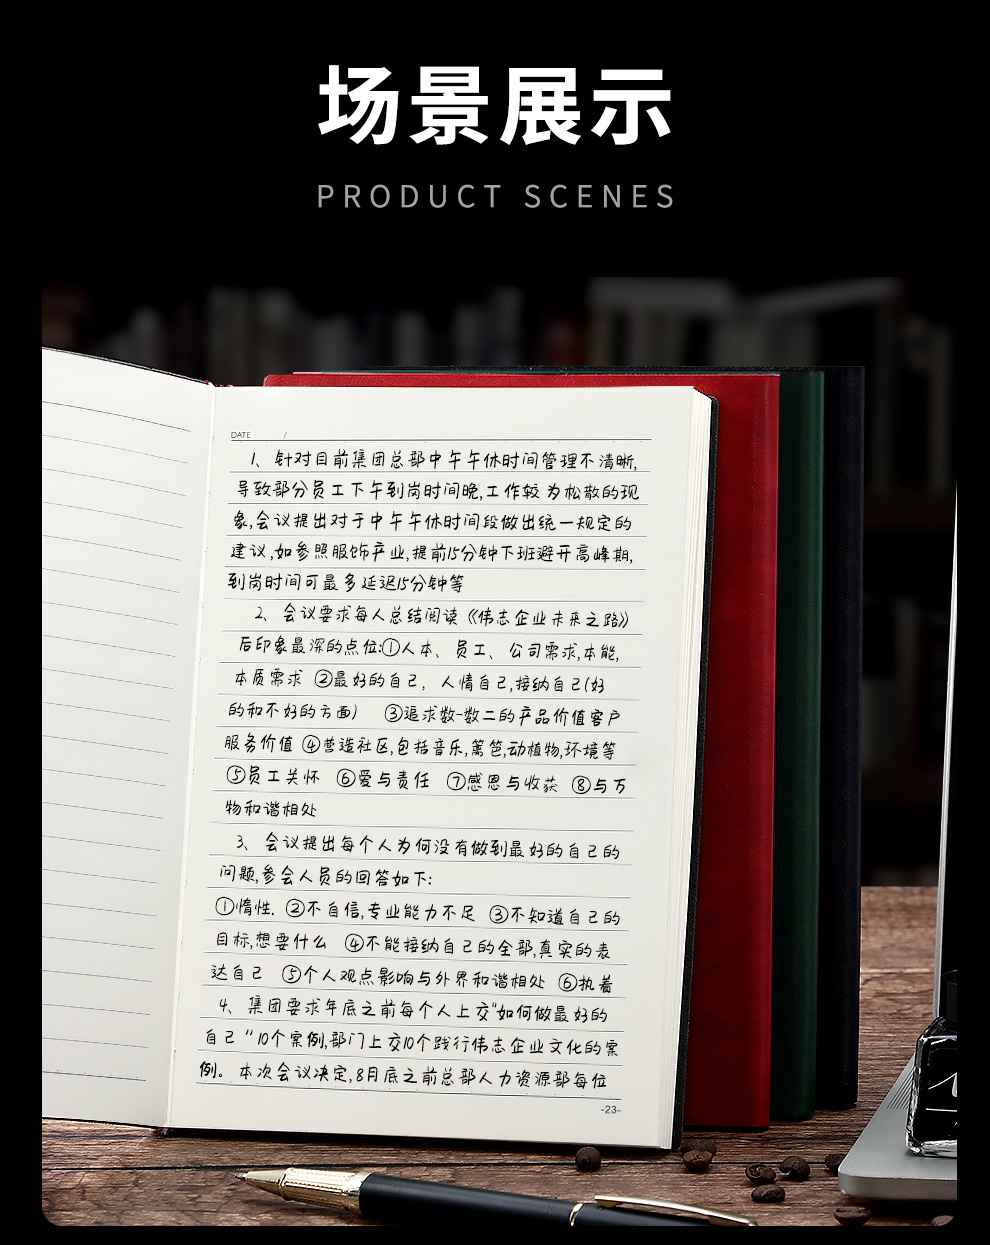 场景展示
PRODUCT SCENES
DATE /
1、针对目前集团总部中午午休时间管理不清晰,
导致部分员工下午到岗时间晚,工作较为松散的现
象,会议提出对于中午午休时间段做出统一规定的
建议,如参照服饰产业,提前15分钟下班避开高峰期,
到岗时间可最多延迟15分钟等
2、会议要求每人总结阅读《伟志企业未来之路》
后印象最深的点位:①人本、员工、公司需求,本能,
本质需求 ②最好的自己, 人情自己,接纳自己(好
的和不好的方面) ③追求数一数二的产品价值客户
服务价值 ④营造社区,包括音乐,篱笆,动植物,环境等
⑤员工关怀 ⑥爱与责任 ⑦感恩与收获 ⑧与万
物和谐相处
3、会议提出每个人为何没有做到最好的自己的
问题,参会人员的回答如下:
①惰性. ②不自信,专业能力不足 ③不知道自己的
目标,想要什么 ④不能接纳自己的全部,真实的表
达自己 ⑤个人观点影响与外界和谐相处 ⑥执着
4、集团要求年底之前每个人上交“如何做最好的
自己”10个案例,部门上交10个践行伟志企业文化的案
例。本次会议决定,8月底之前总部人力资源部每位
-23-